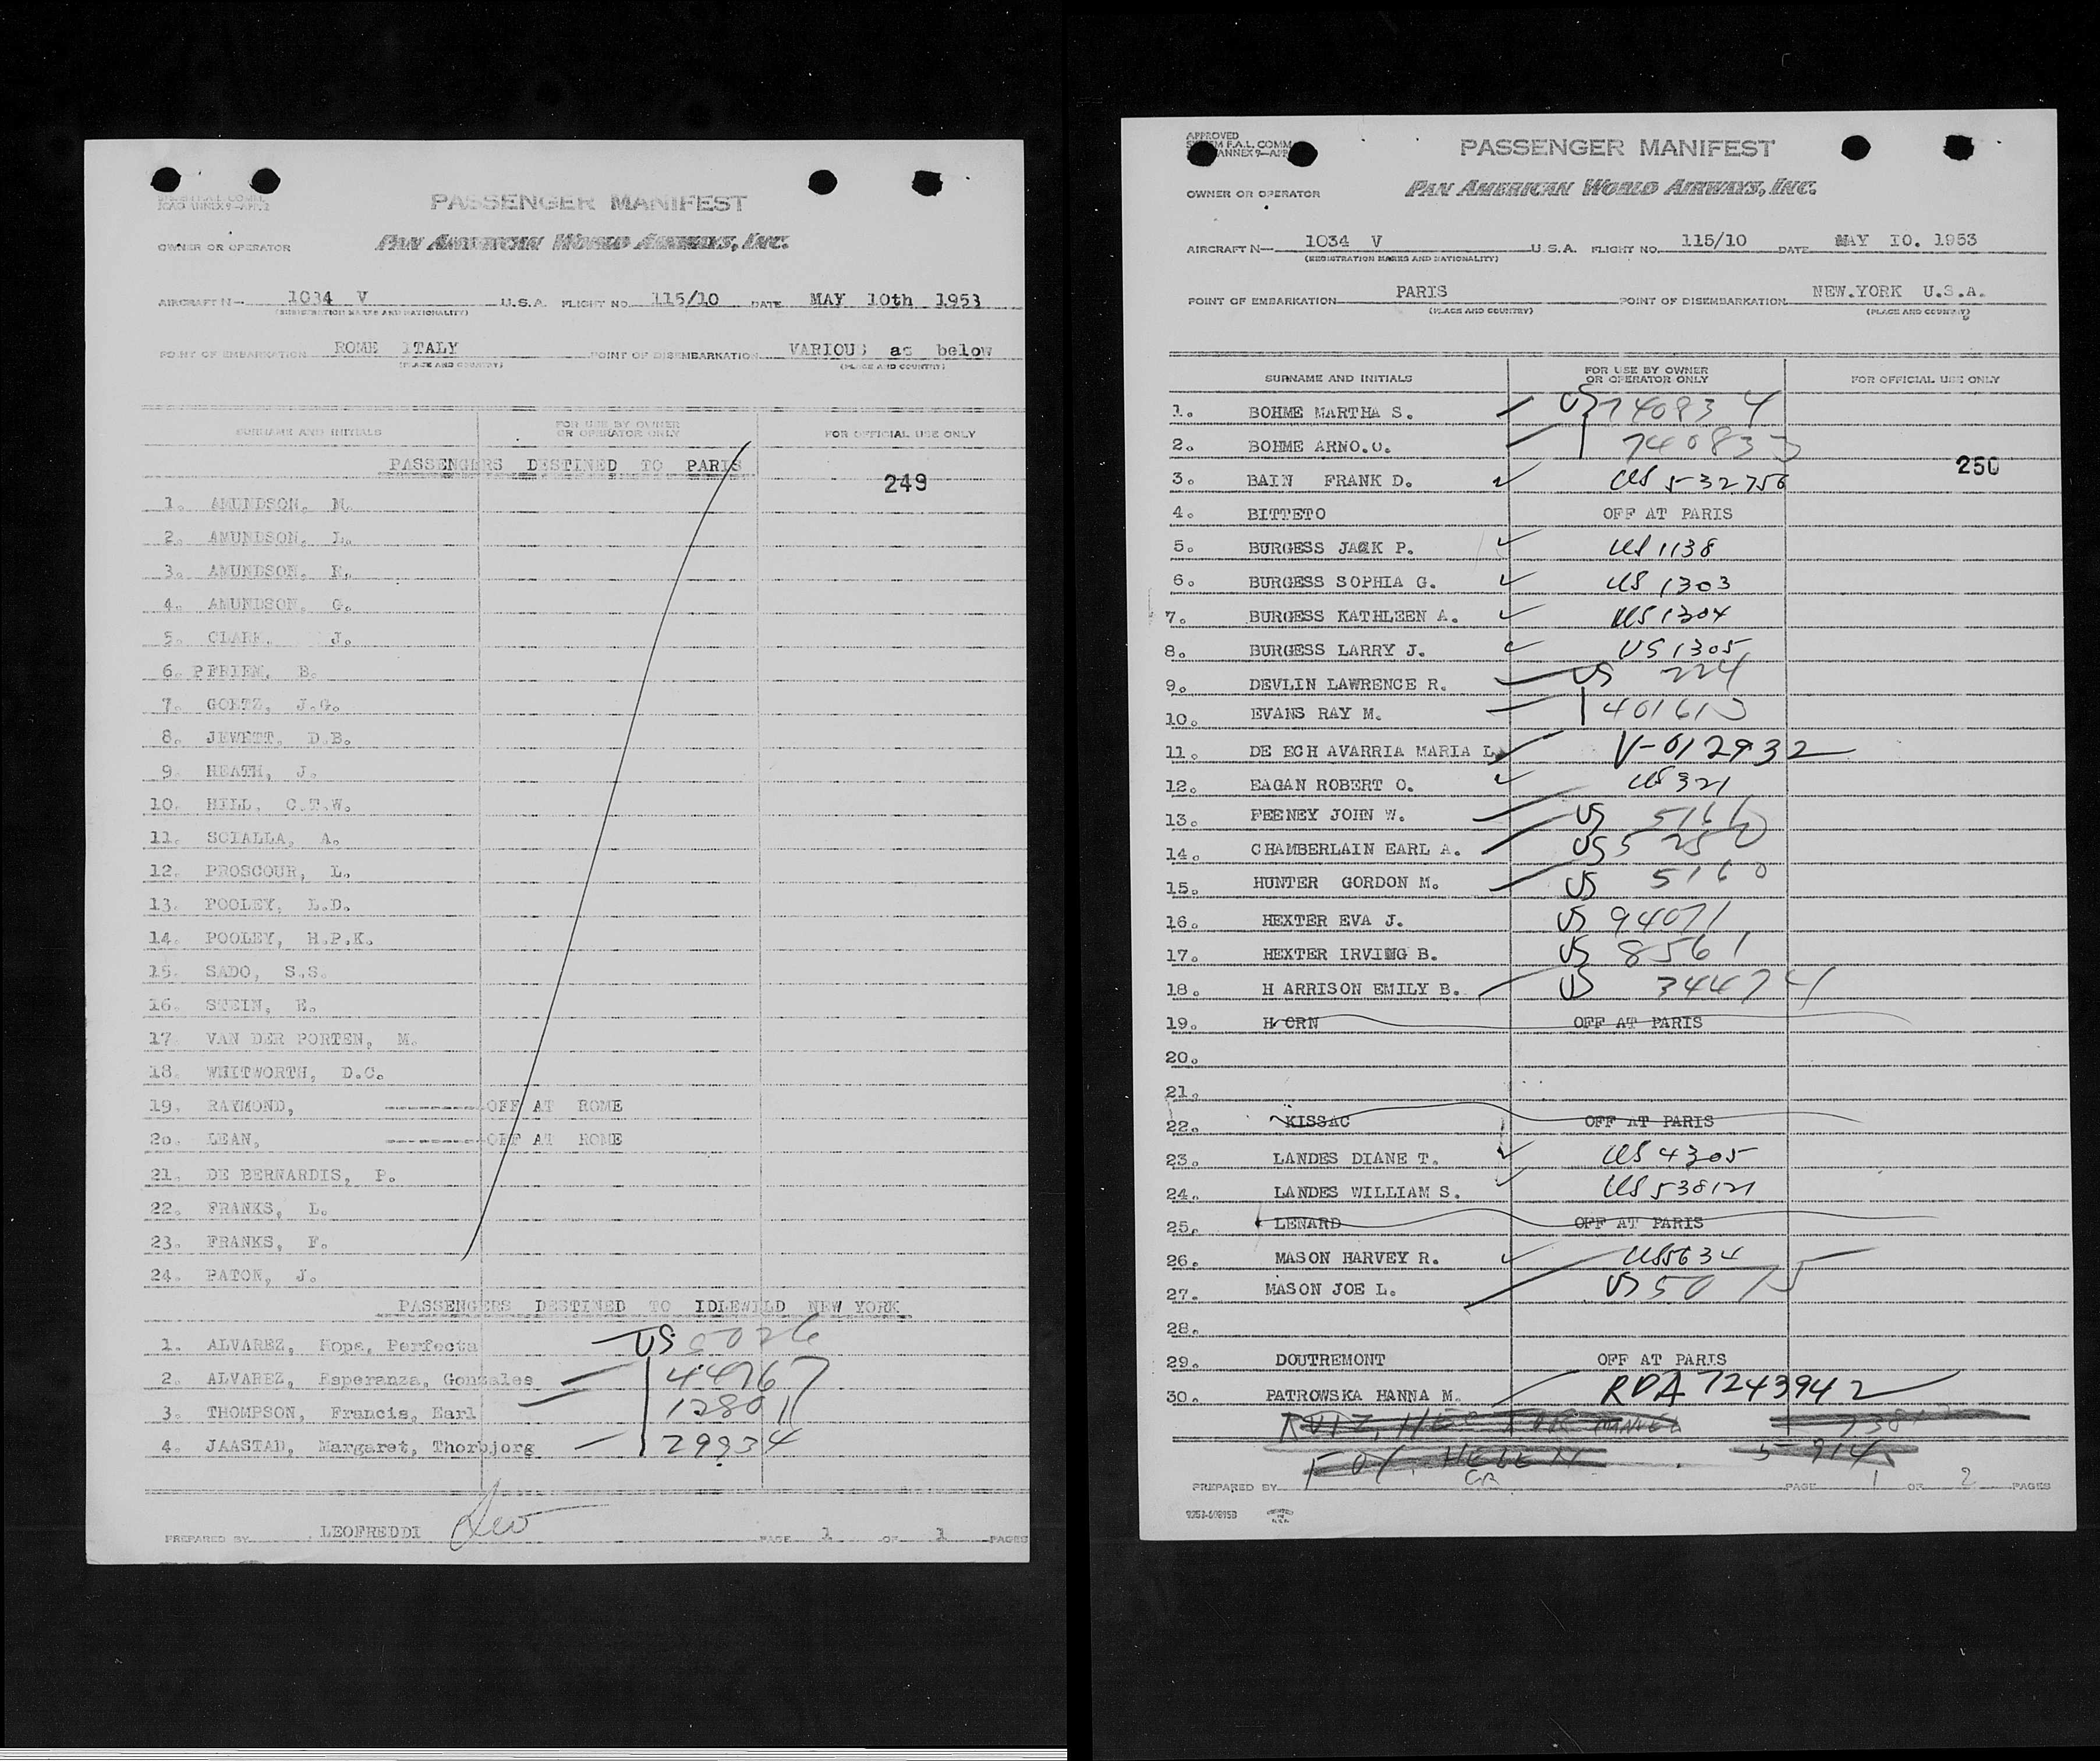 PASSENGER MANIFEST
OWNER OR OPERATOR PAN AMERICAN WORLD AIRWAYS, INC.
AIRCRAFT N— 1034 V U.S.A. FLIGHT NO. 115/10 DATE MAY 10th 1953
(REGISTRATION MARKS AND NATIONALITY)
POINT OF EMBARKATION ROME ITALY POINT OF DISEMBARKATION VARIOUS as below
(PLACE AND COUNTRY) (PLACE AND COUNTRY)
SURNAME AND INITIALS FOR USE BY OWNER OR OPERATOR ONLY FOR OFFICIAL USE ONLY
PASSENGERS DESTINED TO PARIS
249
1. AMUNDSON, M.
2. AMUNDSON, L.
3. AMUNDSON, K.
4. AMUNDSON, G.
5. CLARK, J.
6. PFRIEM, B.
7. GOETZ, J.G.
8. JEWETT, D.B.
9. HEATH, J.
10. HILL, C.T.W.
11. SCIALLA, A.
12. PROSCOUR, L.
13. POOLEY, L.D.
14. POOLEY, H.P.K.
15. SADO, S.S.
16. STEIN, E.
17. VAN DER PORTEN, M.
18. WHITWORTH, D.C.
19. RAYMOND, ---------OFF AT ROME
20. LEAN, ---------OFF AT ROME
21. DE BERNARDIS, P.
22. FRANKS, L.
23. FRANKS, F.
24. PATON, J.
PASSENGERS DESTINED TO IDLEWILD NEW YORK
1. ALVAREZ, Hope, Perfecta US 5026
2. ALVAREZ, Esperanza, Gonzales 44767
3. THOMPSON, Francis, Earl 12801
4. JAASTAD, Margaret, Thorbjorg 29934
PREPARED BY LEOFREDDI Leo PAGE 1 OF 1 PAGES
APPROVED
F.A.L. COMM
ANNEX 9—APP
PASSENGER MANIFEST
OWNER OR OPERATOR PAN AMERICAN WORLD AIRWAYS, INC.
AIRCRAFT N— 1034 V U.S.A. FLIGHT NO. 115/10 DATE MAY 10. 1953
(REGISTRATION MARKS AND NATIONALITY)
POINT OF EMBARKATION PARIS POINT OF DISEMBARKATION NEW.YORK U.S.A.
(PLACE AND COUNTRY) (PLACE AND COUNTRY)
SURNAME AND INITIALS FOR USE BY OWNER OR OPERATOR ONLY FOR OFFICIAL USE ONLY
1. BOHME MARTHA S. US 740834
2. BOHME ARNO.O. 740833
250
3. BAIN FRANK D. US 532756
4. BITTETO OFF AT PARIS
5. BURGESS JACK P. US 1138
6. BURGESS SOPHIA G. US 1303
7. BURGESS KATHLEEN A. US 1304
8. BURGESS LARRY J. US 1305
9. DEVLIN LAWRENCE R. US 224
10. EVANS RAY M. 401613
11. DE ECH AVARRIA MARIA L V-012932
12. EAGAN ROBERT O. US 321
13. FEENEY JOHN W. US 5166
14. CHAMBERLAIN EARL A. US 5250
15. HUNTER GORDON M. US 5160
16. HEXTER EVA J. US 94071
17. HEXTER IRVING B. US 8561
18. H ARRISON EMILY B. US 34474
19. HORN OFF AT PARIS
20.
21.
22. KISSAC OFF AT PARIS
23. LANDES DIANE T. US 4305
24. LANDES WILLIAM S. US 538121
25. LENARD OFF AT PARIS
26. MASON HARVEY R. US 5634
27. MASON JOE L. US 5075
28.
29. DOUTREMONT OFF AT PARIS
30. PATROWSKA HANNA M. RDA 7243942
FOY HELEN 5 914
PREPARED BY GR PAGE 1 OF 2 PAGES